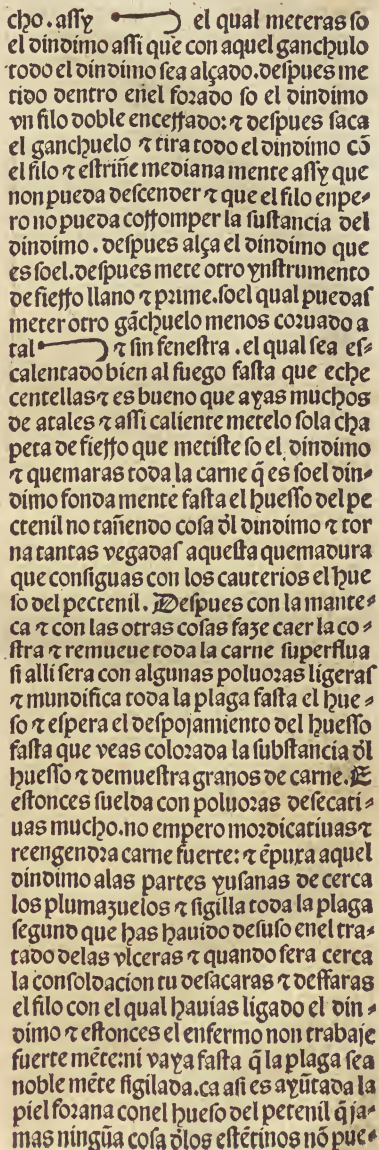 cho. aſſy el qual meteras ſo
el dindimo aſſi que con aquel ganchulo
todo el dindimo ſea alçado. deſpues me
tido dentro enel forado ſo el dindimo
vn filo doble enceſſado: ⁊ deſpues ſaca
el ganchuelo ⁊ tira todo el dindimo cõ
el filo ⁊ eſtriñe mediana mente aſſy que
non pueda deſcender ⁊ que el filo enpe⸗
ro no pueda coſſomper la ſuſtancia del
dindimo. deſpues alça el dindimo que
es ſoel. deſpues mete otro ynſtrumento
de fieſſo llano ⁊ prime. ſoel qual puedaſ
meter otro gãchuelo menos coruado a
tal ⁊ ſin feneſtra. el qual ſea eſ⸗
calentado bien al fuego faſta que eche
centellas ⁊ es bueno que ayas muchos
de atales ⁊ aſſi caliente metelo ſola cha
peta de fieſſo que metiſte ſo el dindimo
⁊ quemaras toda la carne q̃ es ſoel din⸗
dimo fonda mente faſta el hueſſo del pe
ctenil no tañendo coſa d̃l dindimo ⁊ tor
na tantas vegadaſ aqueſta quemadura
que conſiguas con los cauterios el hue
ſo del pectenil. Deſpues con la mante⸗
ca ⁊ con las otras coſas faze caer la co⸗
ſtra ⁊ remueue toda la carne ſuperflua
ſi alli ſera con algunas poluoras ligeraſ
⁊ mundifica toda la plaga faſta el hue⸗
ſo ⁊ eſpera el deſpojamiento del hueſſo
faſta que veas colorada la ſubſtancia d̃l
hueſſo ⁊ demueſtra granos de carne. E
eſtonces ſuelda con poluoras deſecati⸗
uas mucho. no empero mordicatiuas ⁊
reengendra carne fuerte: ⁊ ẽpuxa aquel
dindimo alas partes yuſanas de cerca
los plumazuelos ⁊ ſigilla toda la plaga
ſegund que has hauido deſuſo enel tra⸗
tado delas vlceras ⁊ quando ſera cerca
la conſoldacion tu deſacaras ⁊ deſſaras
el filo con el qual hauias ligado el din⸗
dimo ⁊ eſtonces el enfermo non trabaje
fuerte mẽte: ni vaya faſta q̃ la plaga ſea
noble mẽte ſigilada. ca aſi es ayũtada la
piel forana conel hueſo del petenil q̃ ja⸗
mas ningũa coſa d̃los eſtẽtinos nõ pue⸗